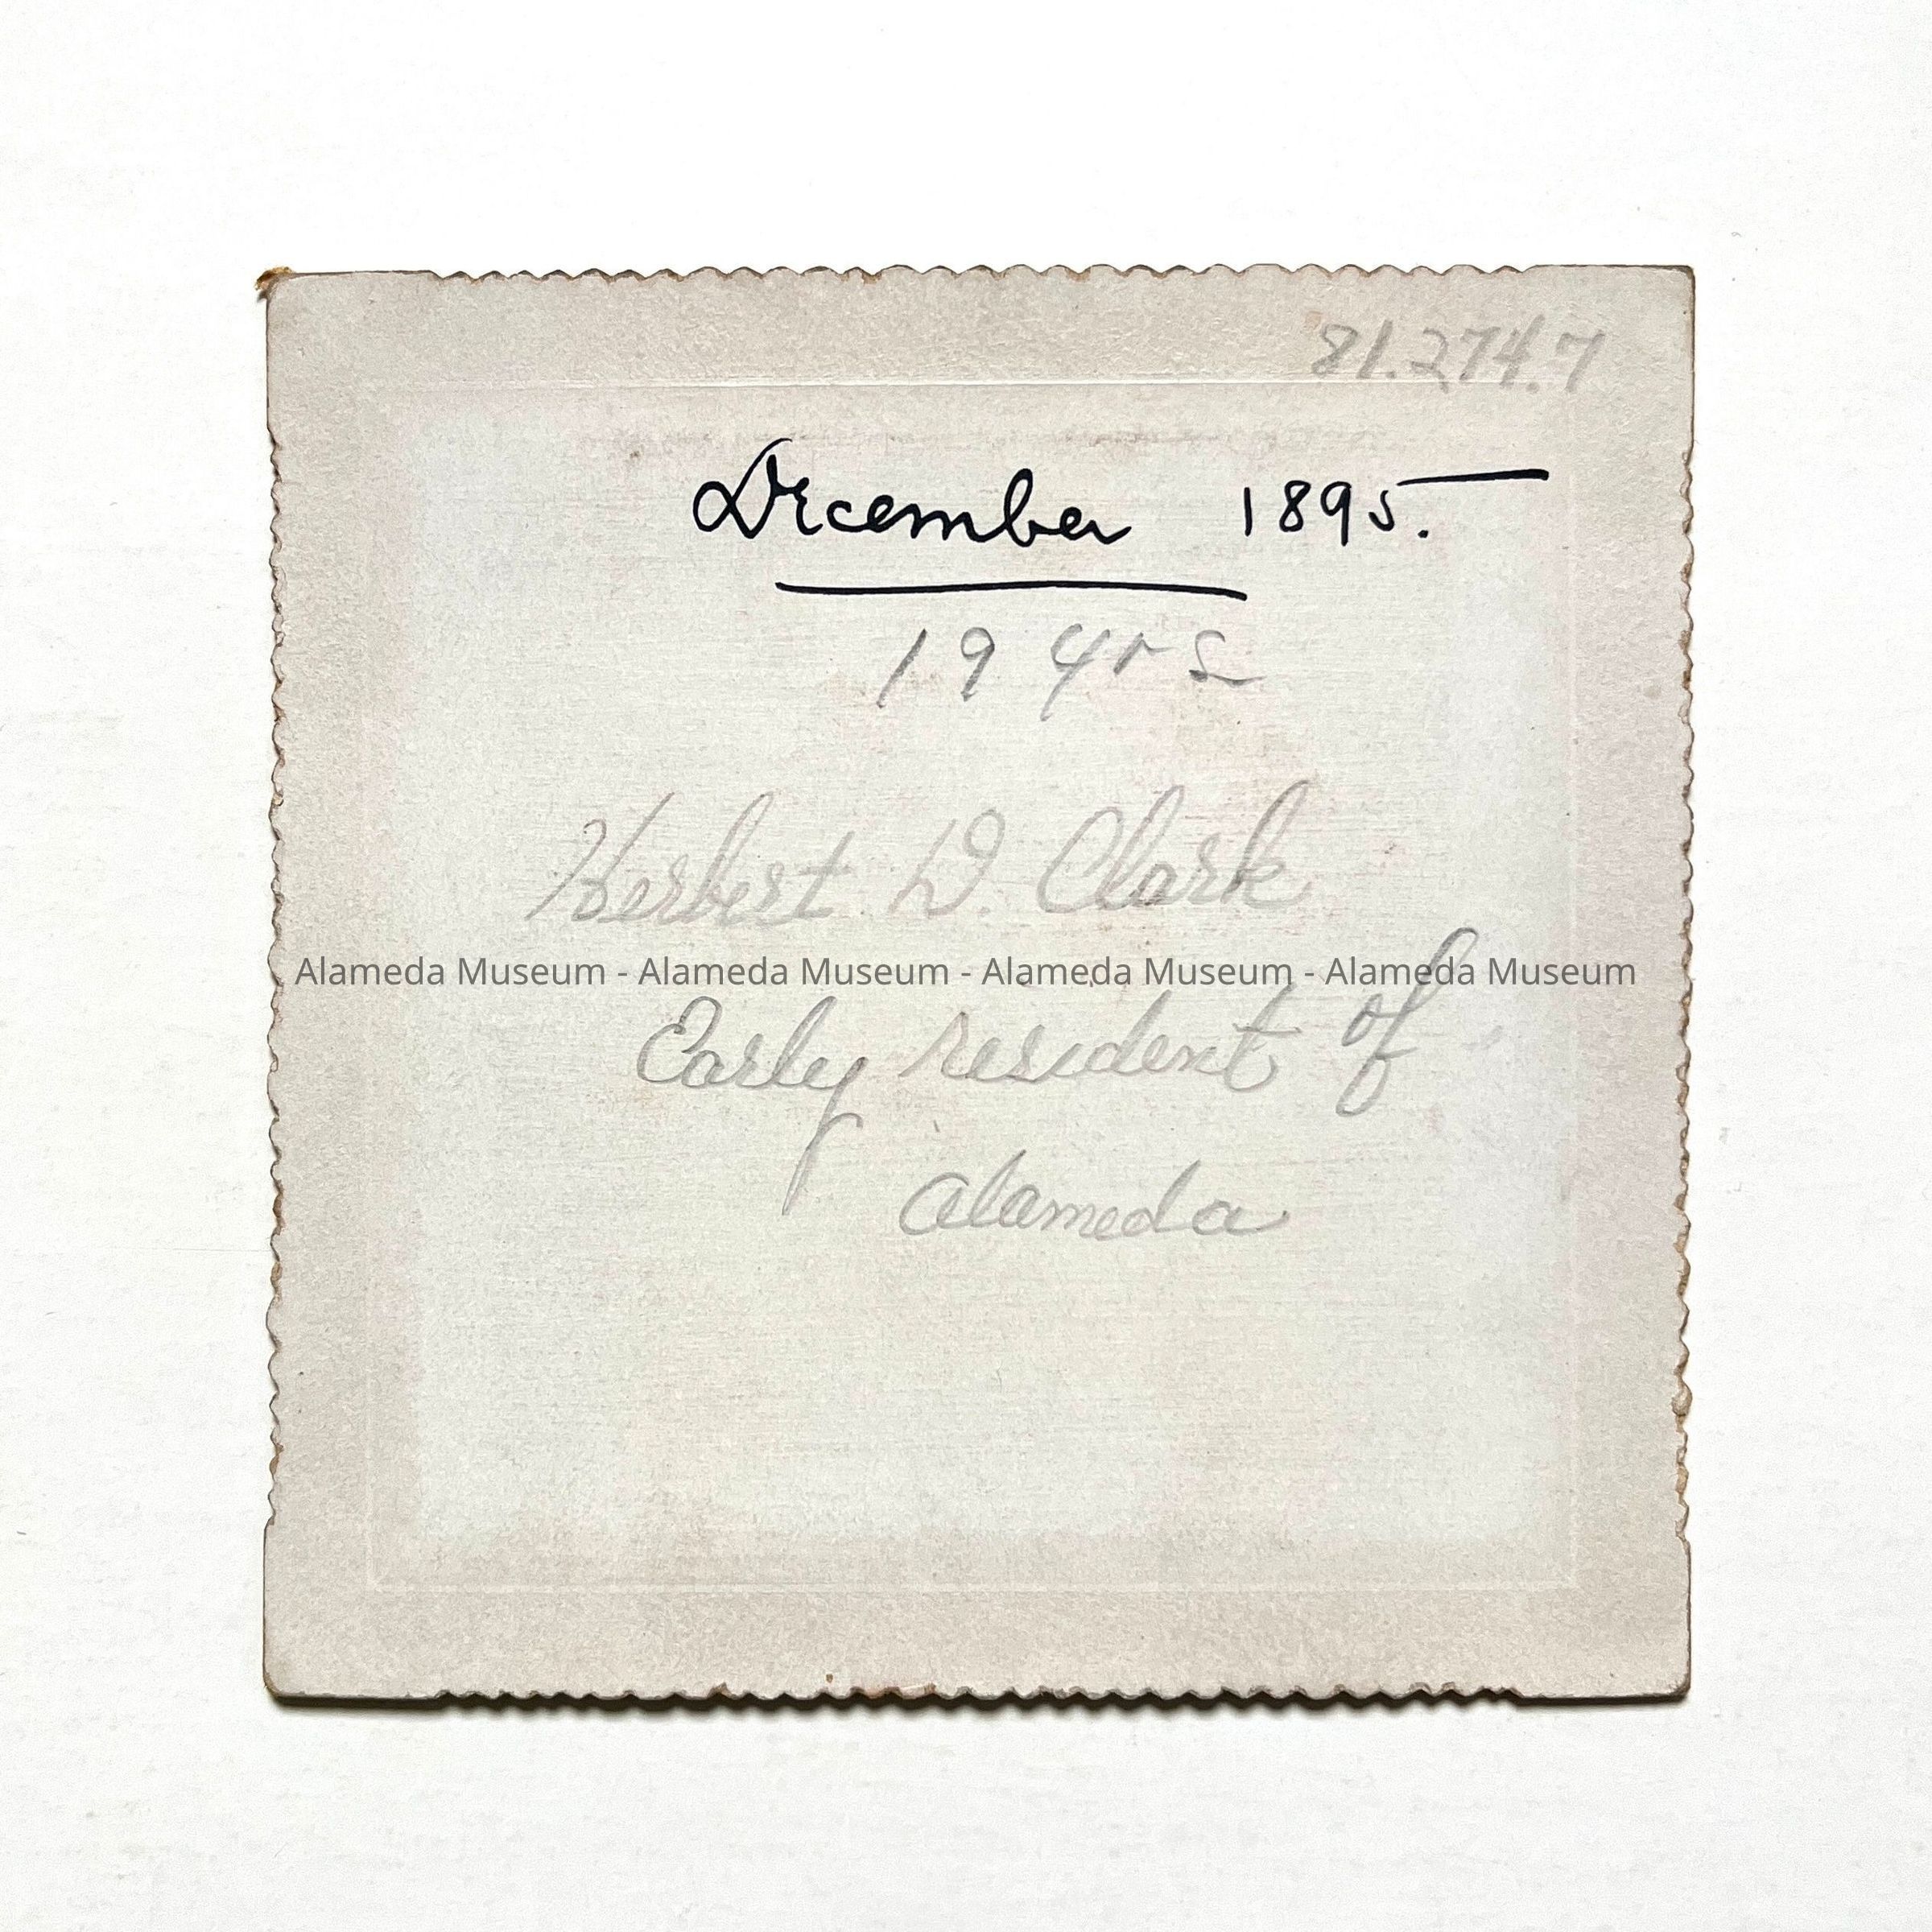 81.274.7
December 1895.
19 yrs
Herbert D. Clark
Alameda Museum - Alameda Museum - Alameda Museum - Alameda Museum
Early resident of
Alameda